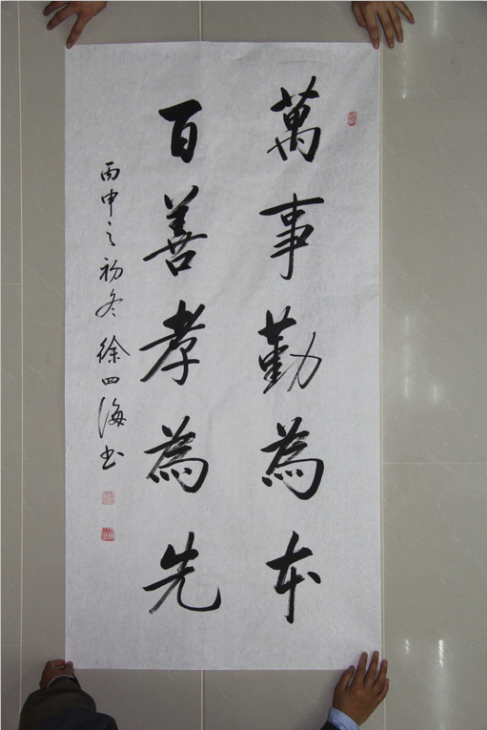 萬事勤為本
百善孝為先
丙申之初冬徐四海书